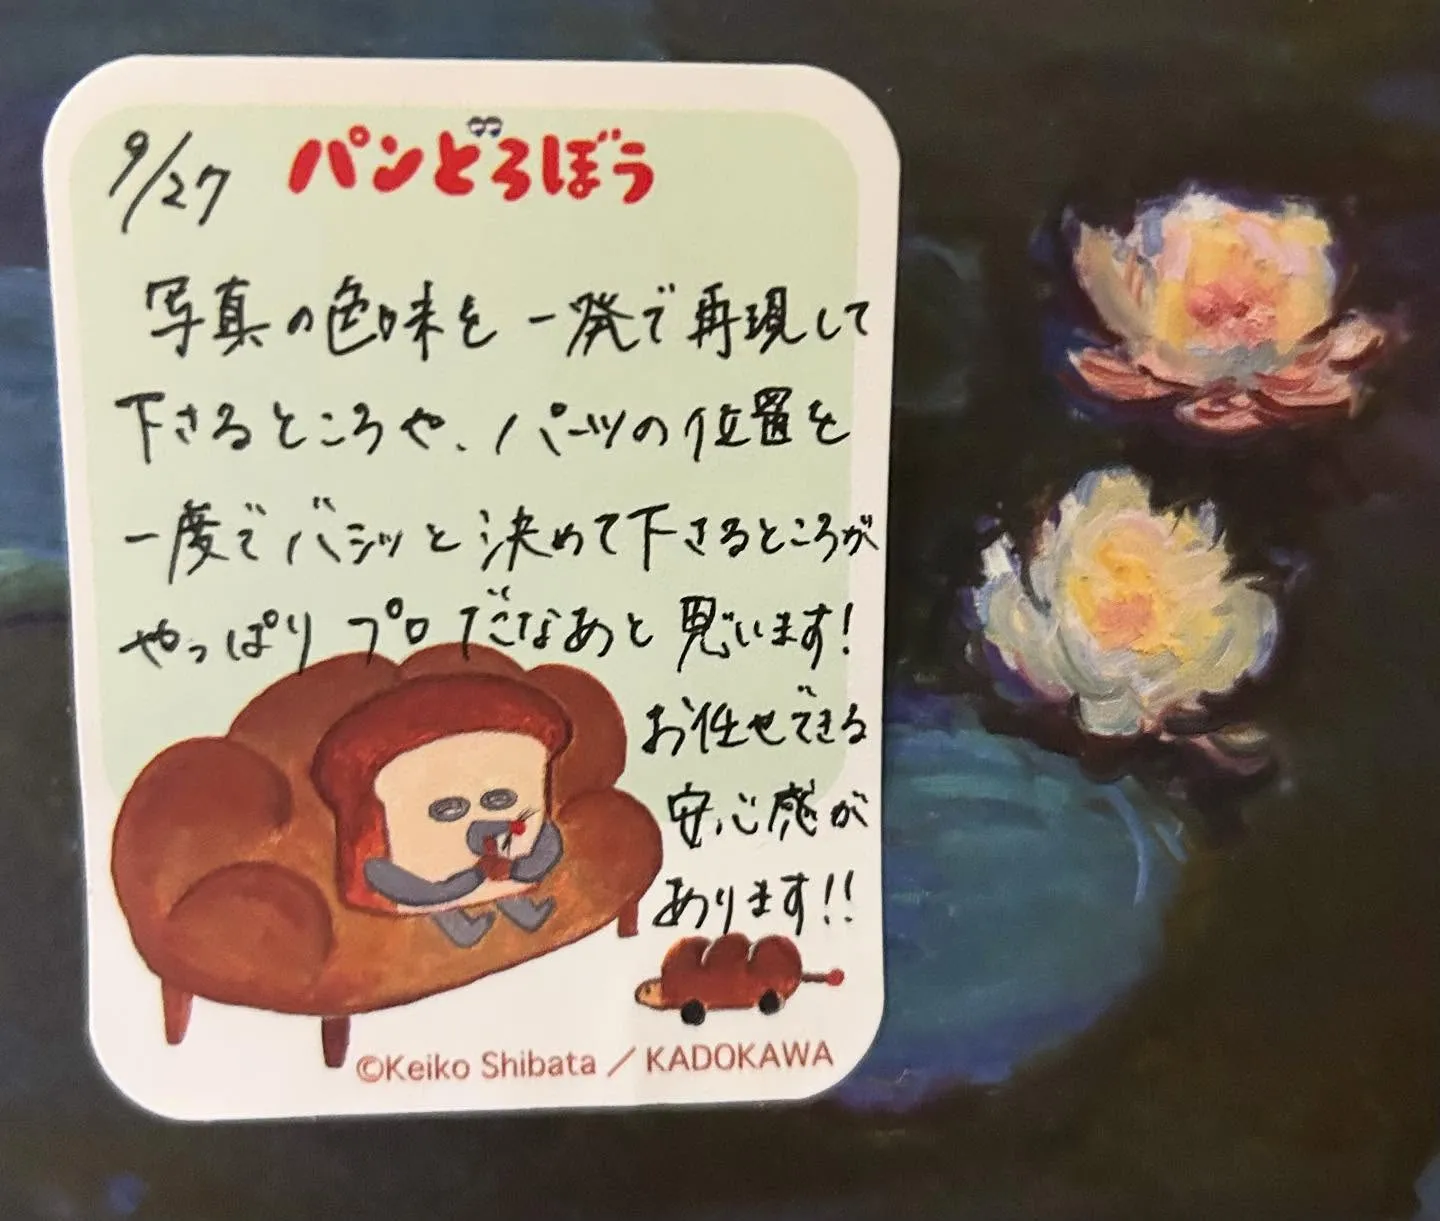 9/27 パンどろぼう
写真の色味を一発で再現して
下さるところや、パーツの位置を
一度でバシッと決めて下さるところが
やっぱりプロだなあと思います!
お任せできる
安心感が
あります!!
©Keiko Shibata / KADOKAWA